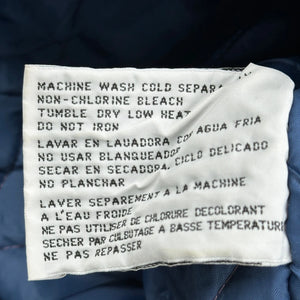 MACHINE WASH COLD SEPARATE
NON-CHLORINE BLEACH
TUMBLE DRY LOW HEAT
DO NOT IRON
LAVAR EN LAUADORA CON AGUA FRIA
NO USAR BLANQUEADOR
SECAR EN SECADORA, CICLO DELICADO
NO PLANCHAR
LAVER SEPAREMENT A LA MACHINE
A L'EAU FROIDE
NE PAS UTILISER DE CHLORURE DECOLORANT
SECHER PAR CULBUTAGE A BASSE TEMPERATURE
NE PAS REPASSER